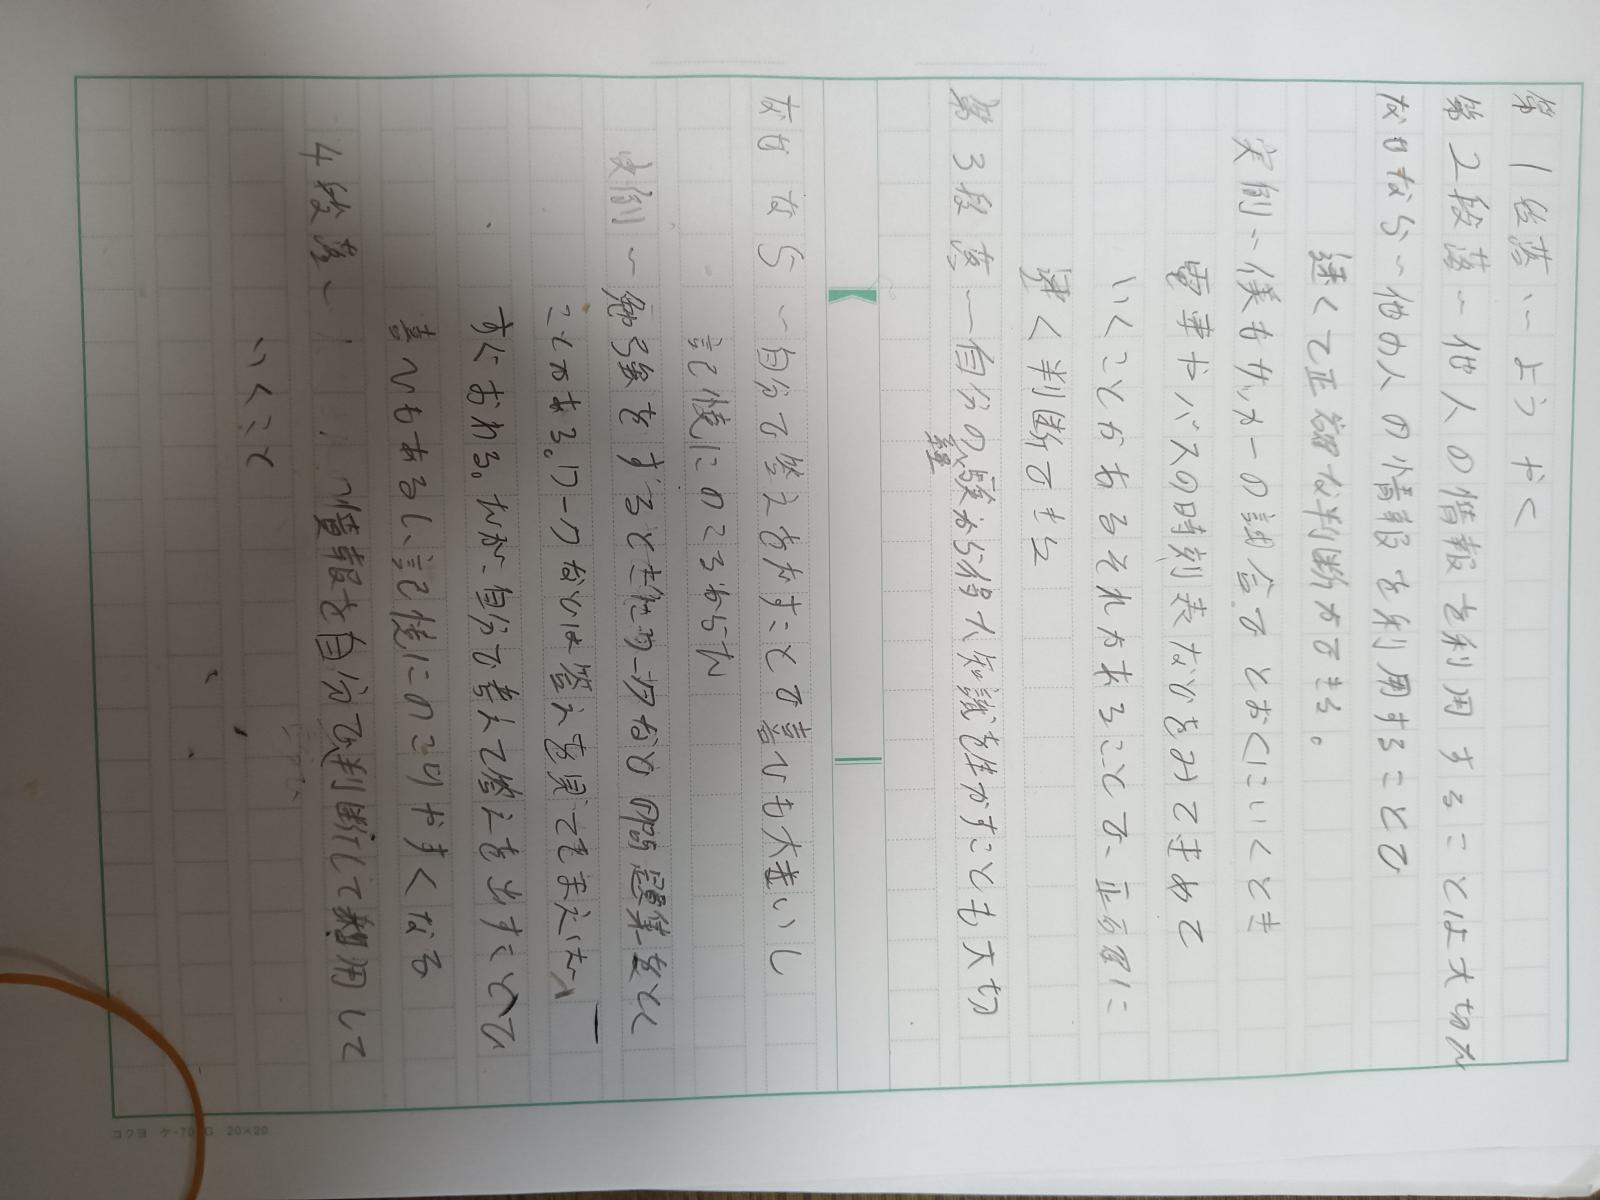 第1段落〜ようやく
第2段落〜他人の情報を利用することは大切だ
なぜなら〜他の人の情報を利用することで
速くて正確な判断ができる。
実例〜僕もサッカーの試合でとおくにいくとき
電車やバスの時刻表などをみてきめて
いくことがあるそれがあることで、正確に
速く判断できた
第3段落〜自分の経験から得た知識を生かすことも大切
なぜなら〜自分で答えをだすことで喜びも大きいし
記憶にのこるからだ
実例〜勉強をするときにワークなどの問題集をとく
ことがある。ワークなどは答えを見てしまえば
すぐおわる。だが、自分で考えて答えを出すことで
喜びもあるし、記憶にのこりやすくなる
4段落〜情報を自分で判断して利用して
いくこと
コクヨ ケ-70 20×20